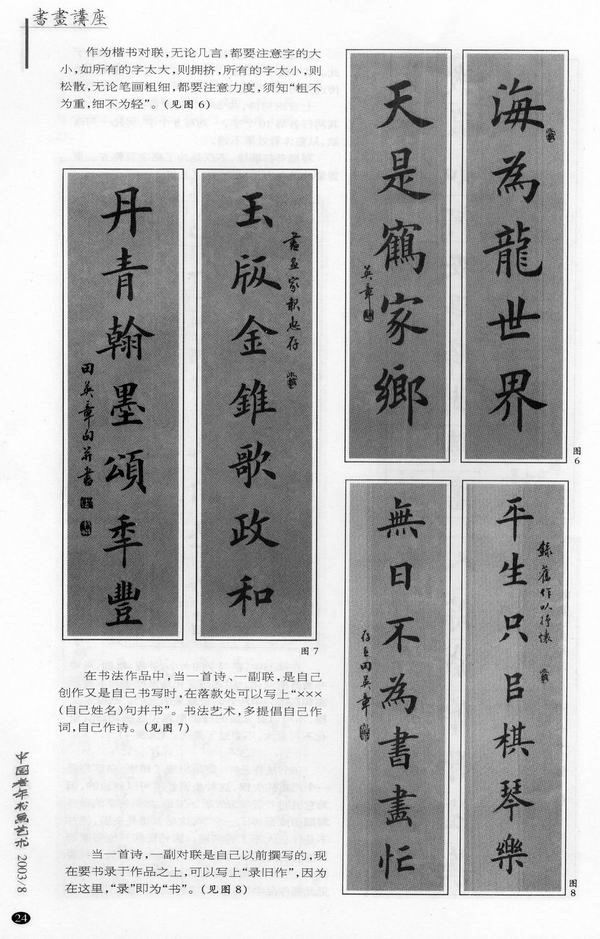 書畫講座
作为楷书对联，无论几言，都要注意字的大
小，如所有的字太大，则拥挤，所有的字太小，则
松散，无论笔画粗细，都要注意力度，须知“粗不
为重，细不为轻”。（见图6）
海為龍世界
天是鶴家鄉
英章
图
6
玉版金錐歌政和
書画家秋忠存
丹青翰墨頌年豐
田英章句并書
图7
平生只占棋琴樂
錄舊作以抒懷
無日不為書畫忙
田英章
图
8
在书法作品中，当一首诗、一副联，是自己
创作又是自己书写时，在落款处可以写上“×××
（自己姓名）句并书”。书法艺术，多提倡自己作
词，自己作诗。（见图7）
当一首诗，一副对联是自己以前撰写的，现
在要书录于作品之上，可以写上“录旧作”，因为
在这里，“录”即为“书”。（见图8）
中国老年书画艺术 2003/8
24